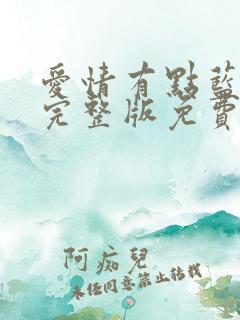 愛情有點藍
完整版免費
阿痴兒
未任同意禁止轉載